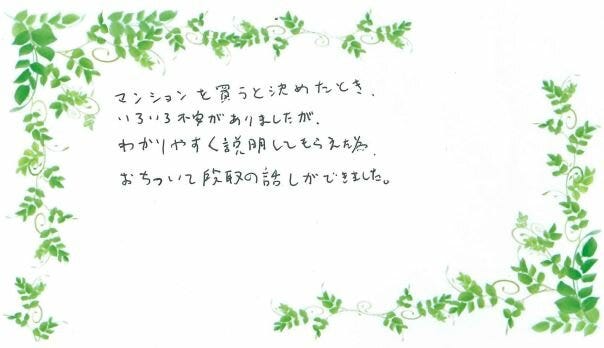 マンションを買うと決めたとき、
いろいろ不安がありましたが、
わかりやすく説明してもらえた為、
おちついて段取の話しができました。